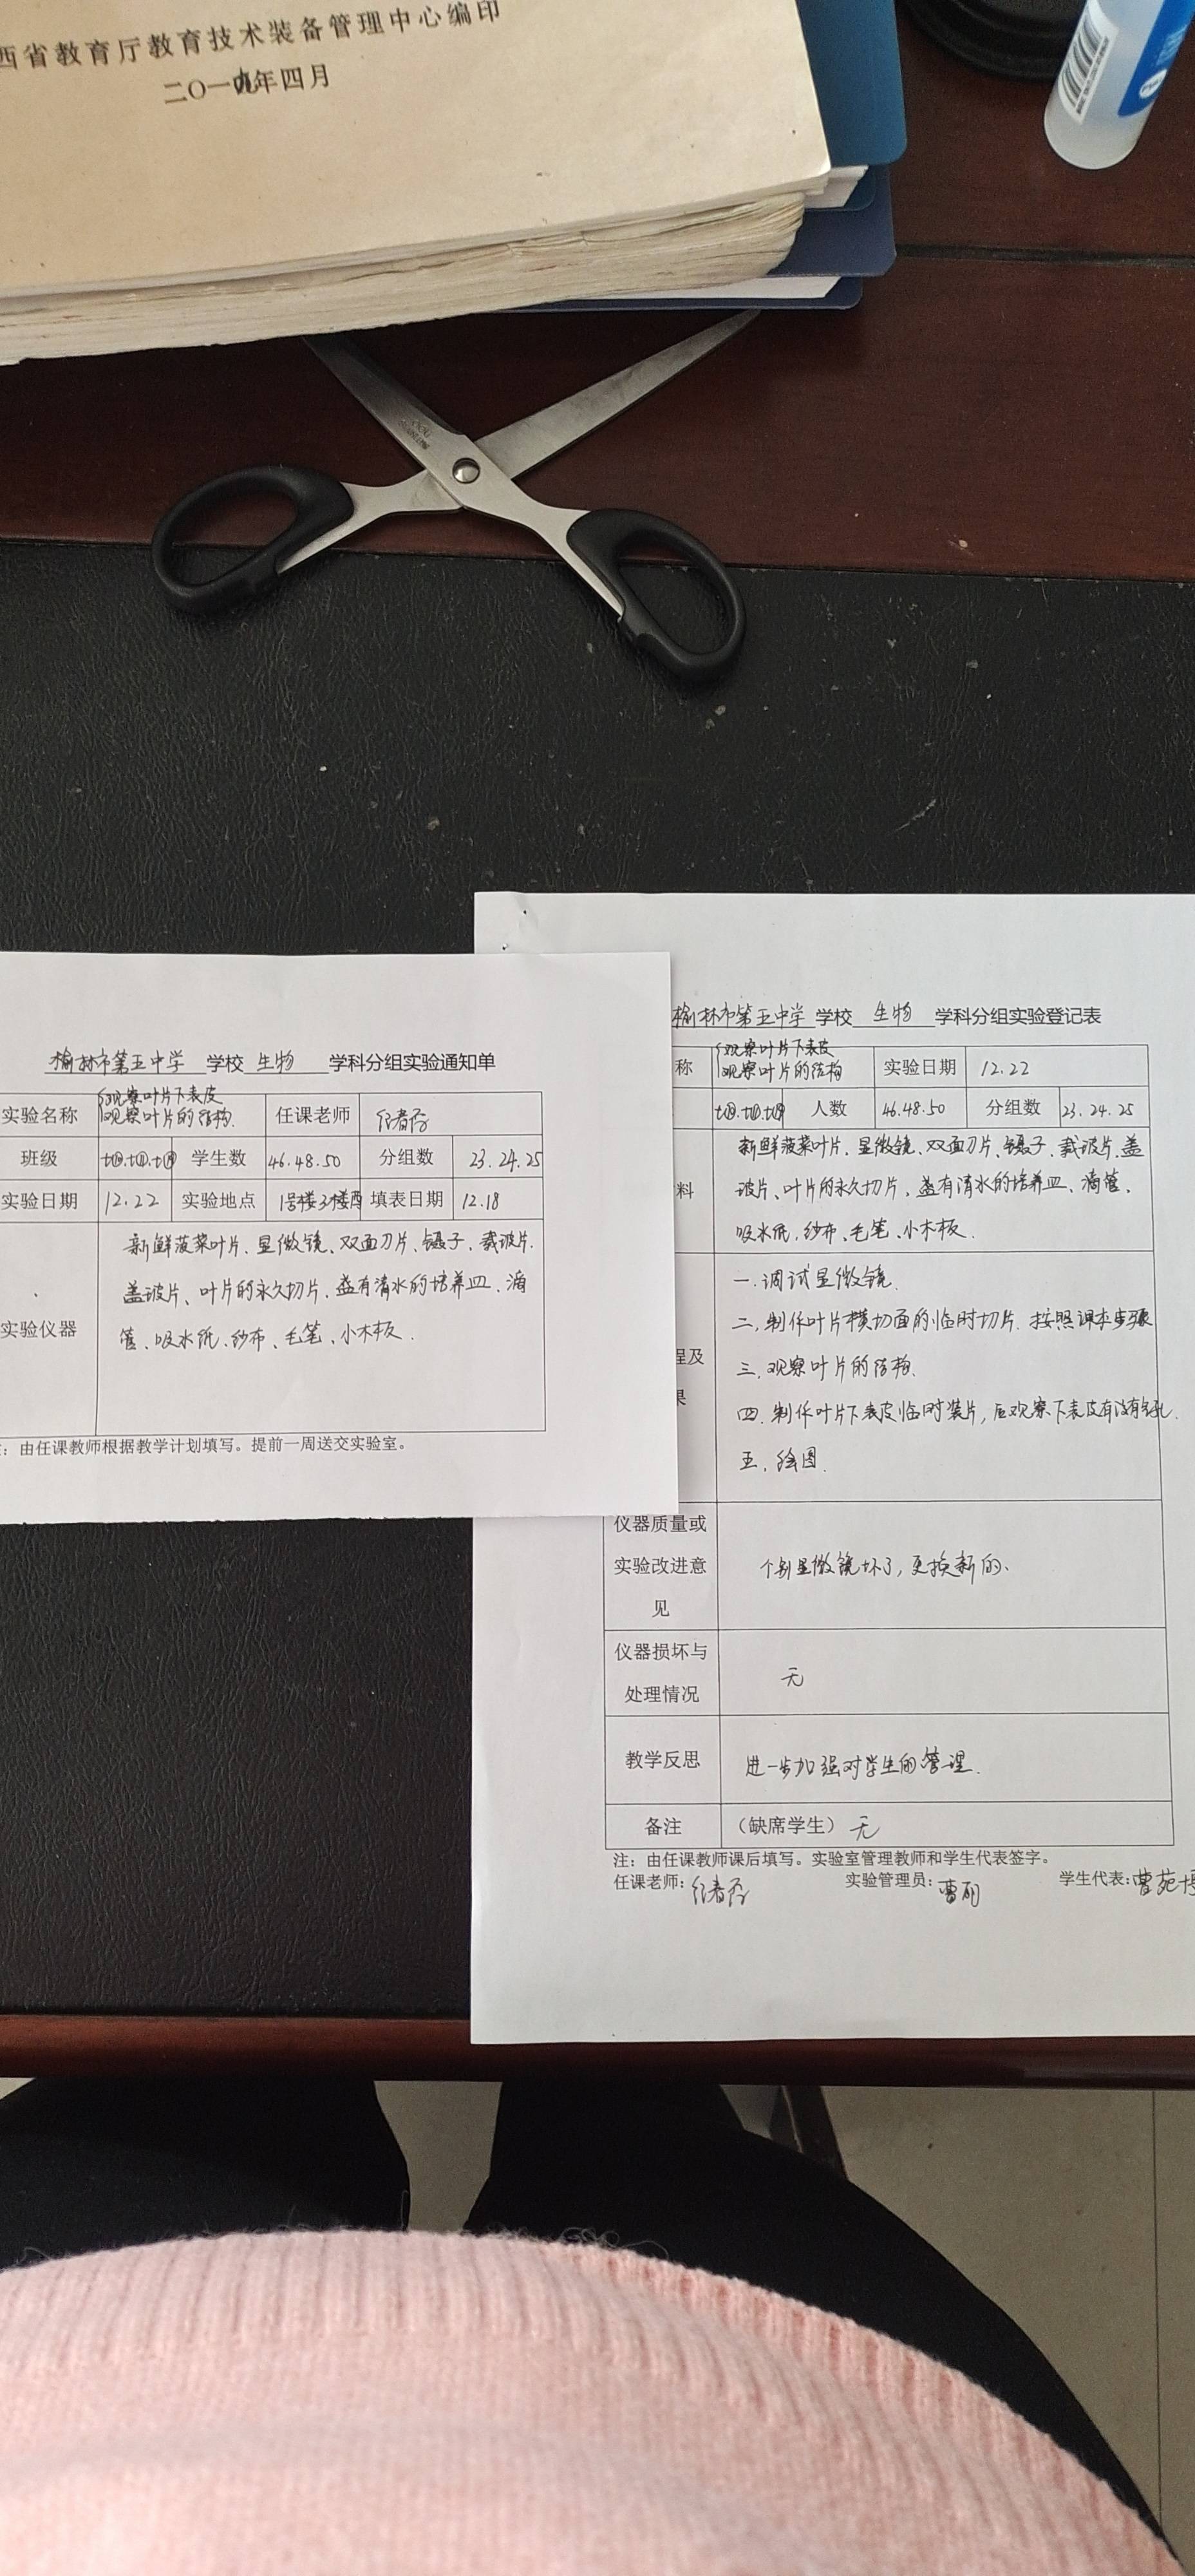 西省教育厅教育技术装备管理中心编印
二〇一九年四月
榆林市第五中学 学校 生物 学科分组实验通知单
实验名称 观察叶片下表皮 观察叶片的结构. 任课老师
班级 学生数 46.48.50 分组数 23.24.25
实验日期 12.22 实验地点 1号楼3楼西 填表日期 12.18
实验仪器
新鲜菠菜叶片.显微镜、双面刀片、镊子、载玻片.
盖玻片、叶片的永久切片.盛有清水的培养皿、滴
管、吸水纸.纱布、毛笔、小木板.
:由任课教师根据教学计划填写。提前一周送交实验室。
榆林市第五中学 学校 生物 学科分组实验登记表
称 观察叶片下表皮 观察叶片的结构 实验日期 12.22
人数 46.48.50 分组数 23.24.25
料
新鲜菠菜叶片.显微镜、双面刀片、镊子、载玻片.盖
玻片、叶片的永久切片、盛有清水的培养皿、滴管、
吸水纸.纱布、毛笔、小木板.
程及
果
一.调试显微镜.
二.制作叶片横切面的临时切片.按照课本步骤
三.观察叶片的结构.
四.制作叶片下表皮临时装片,观察下表皮有没有气孔.
五.绘图.
仪器质量或
实验改进意
见
个别显微镜坏了,更换新的.
仪器损坏与
处理情况
无
教学反思 进一步加强对学生的管理.
备注 (缺席学生) 无
注:由任课教师课后填写。实验室管理教师和学生代表签字。
任课老师: 实验管理员: 学生代表: